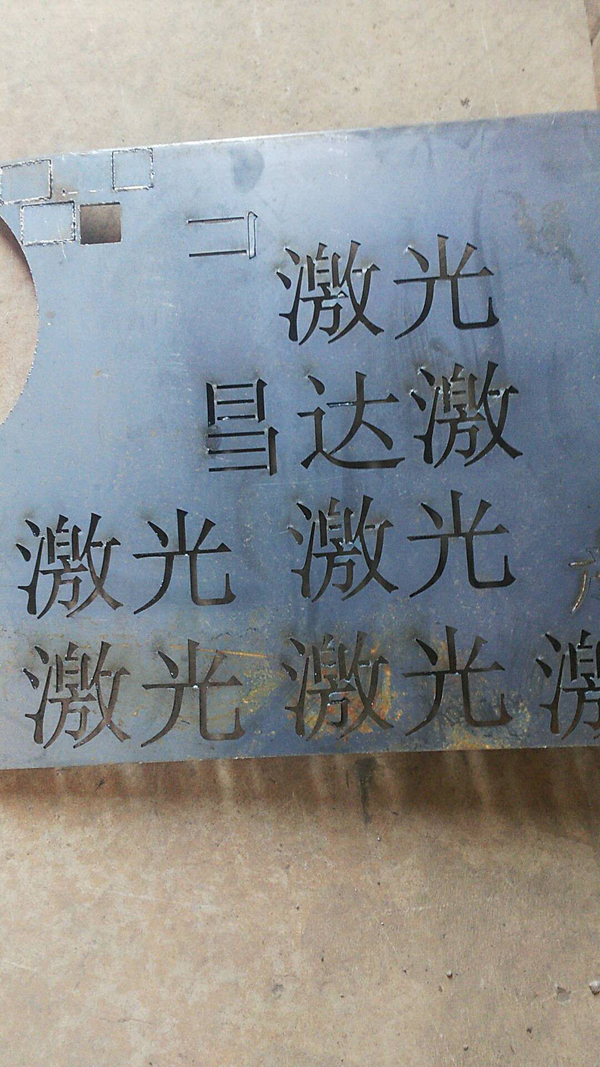 激光
昌达激
激光 激光
激光 激光 激